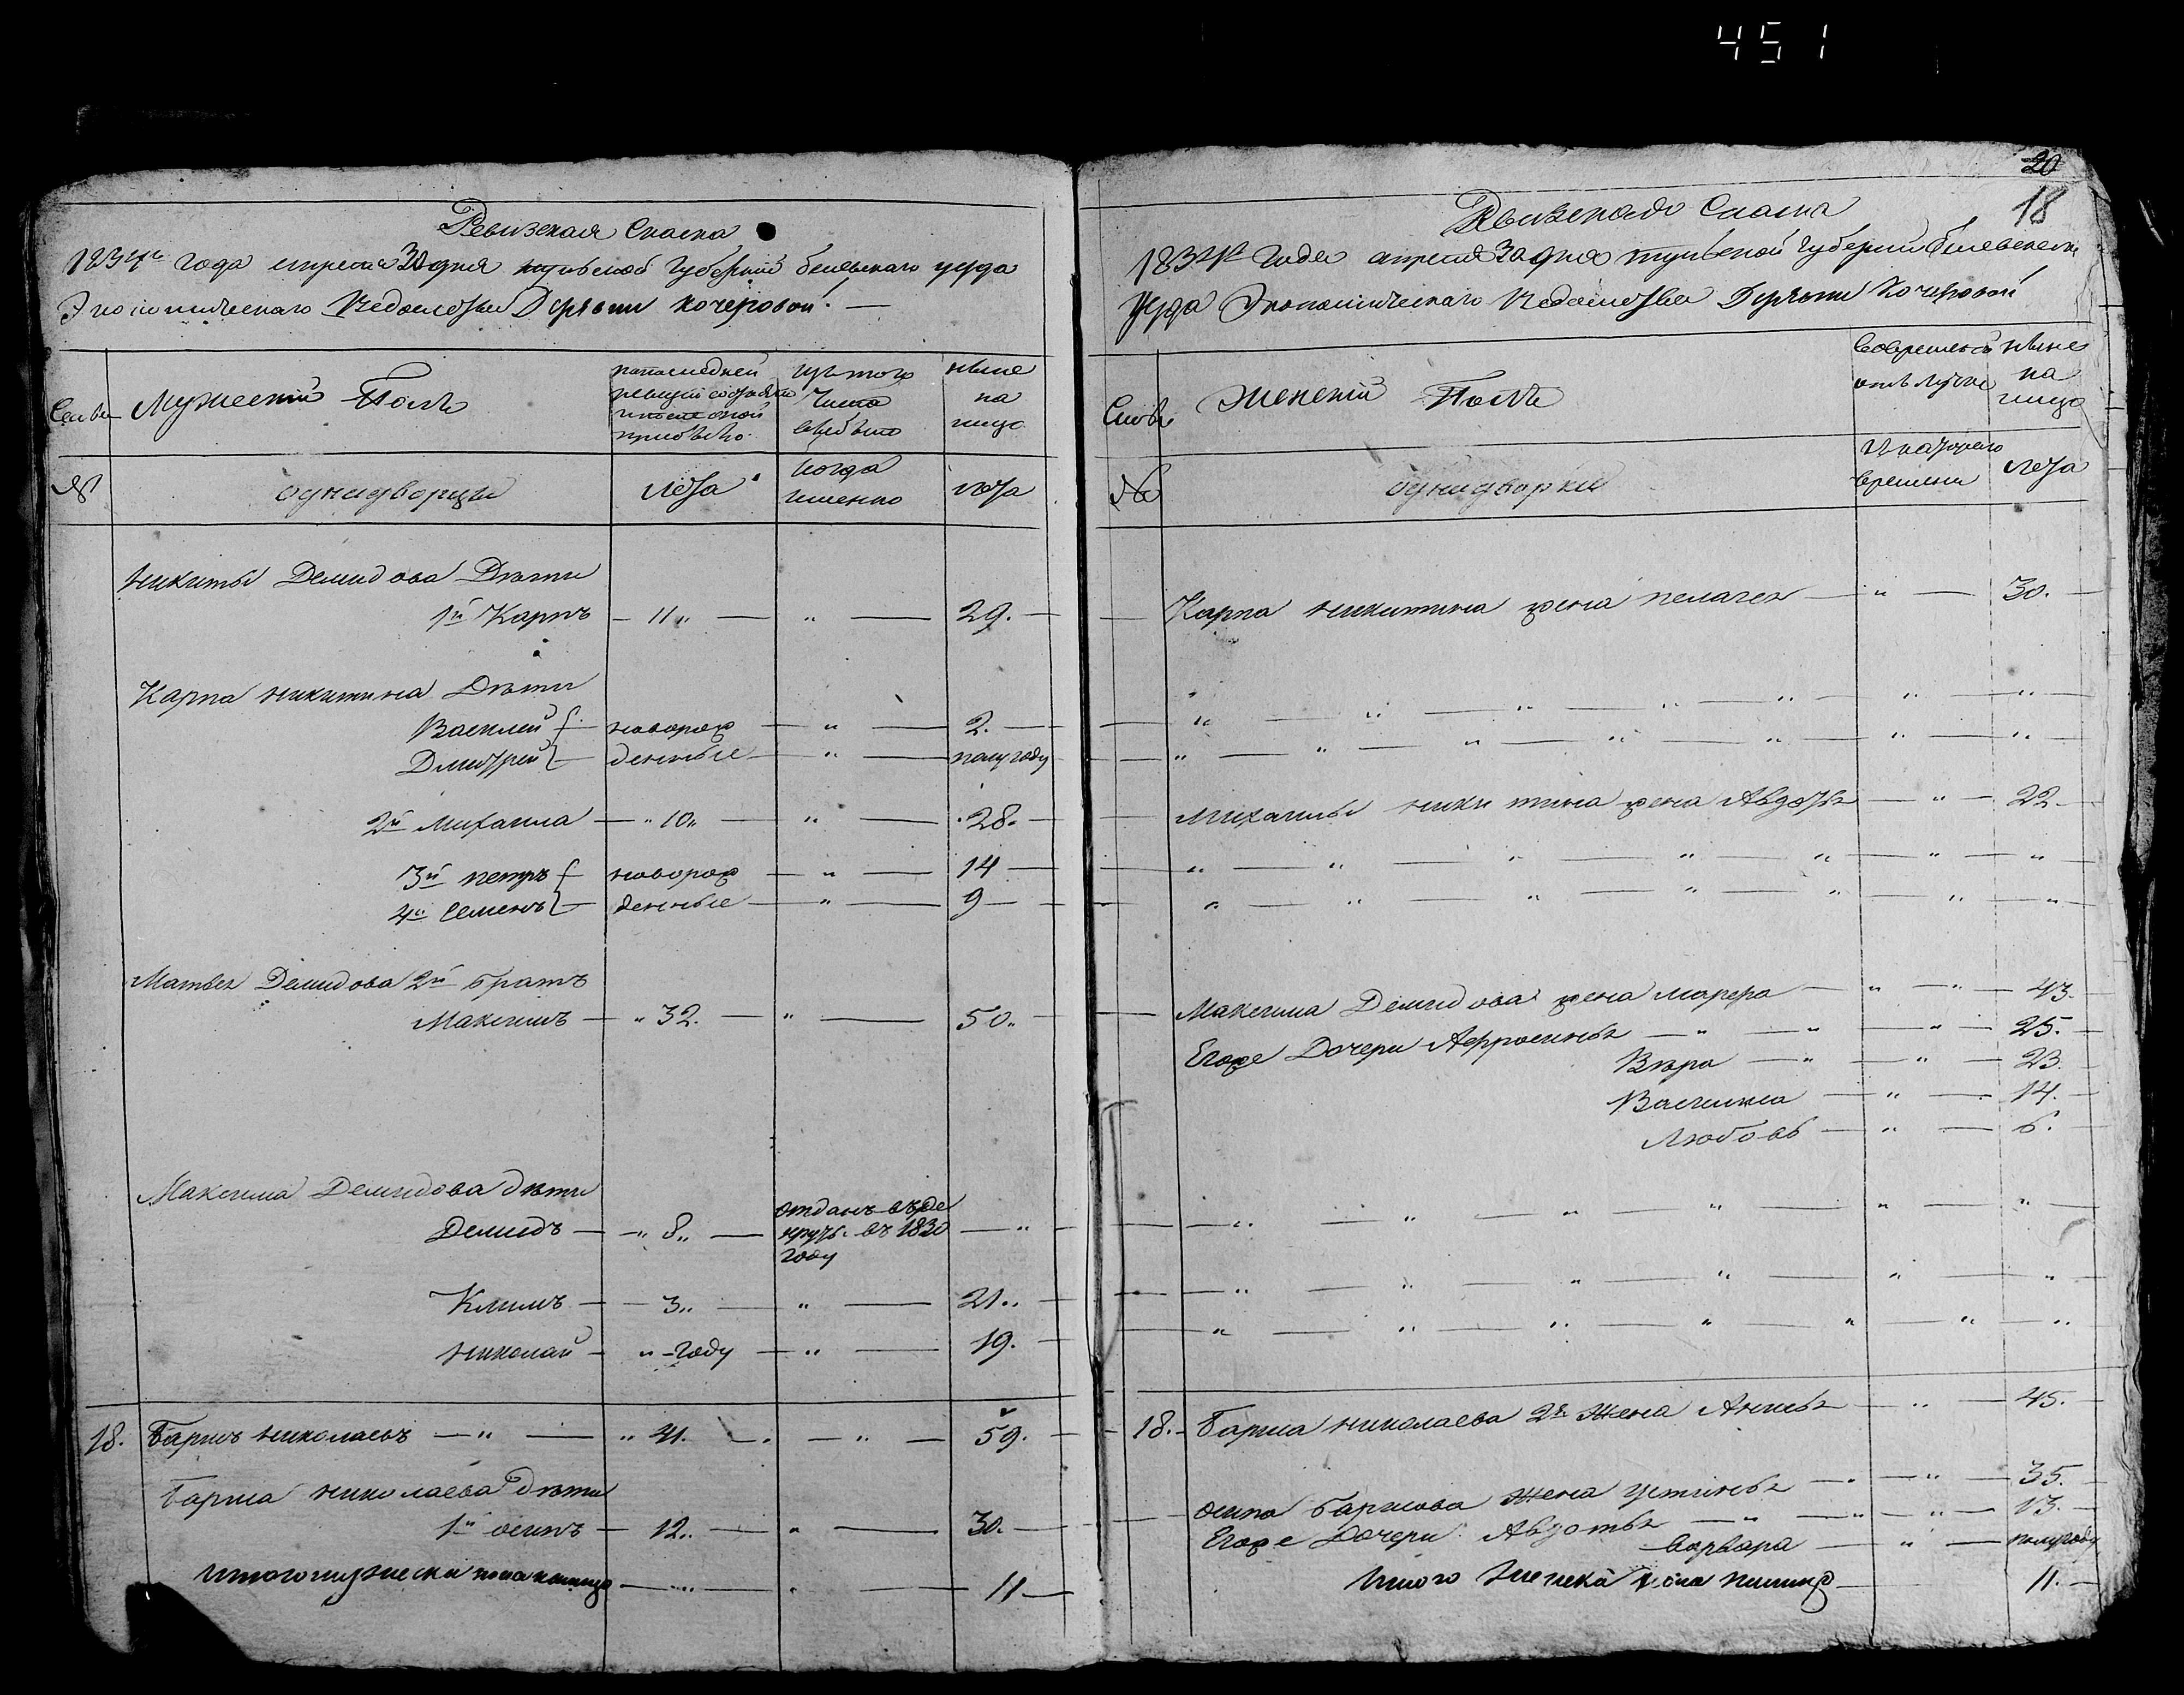 451
Ревизская Сказка
1834го года апреля 30 дня тульской Губернии белевскаго уезда
Экономическаго Ведомства Деревни кочеровой
Семьи
Мужеский Полъ
попоследней ревизии состояло и после оной прибыло
изъ того Числа выбыло
ныне на лицо
№
однодворцы
Лета
когда именно
лета
Никиты Демидова Дѣти
1й Карпъ — 11 „ — „ — 29. —
Карпа никитина Дѣти
Василей — новорож — „ — 2. —
Дмитрей — денные — „ — полугоду
2й Михаила — „ 10 „ — „ — 28. —
3й петръ — новорож — „ — 14 —
4й Семенъ — денные — „ — 9 —
Матвея Демидова 2й братъ
Максимъ — „ 32. — „ — 50 „
Максима Демидова дѣти
Демидъ — „ 8 „ — отданъ въ ре
круты въ 1830 — „
году
Климъ — 3 „ — „ — 21 „
Николай — „ - году — „ — 19.
18. Барисъ николаевъ — „ — „ 41. — „ — 59.
Бариса николаева дѣти
1й осипъ — 12 „ — „ — 30. —
Итого мужеска пола налицо — „ — 11 —
20
18
Ревизская Сказка
1834го Года апреля 30 дня тульской Губернии белевскаго
Уезда Экономическаго Ведомства Деревни Кочеровой
Семьи
Женский Полъ
вовременной отлучке
ныне на лицо
№
однодворки
съ котораго времени
лета
Карпа никитина жена пелагея — „ — 30. —
„ — „ — „ — „ — „ — „ — „
„ — „ — „ — „ — „ — „ — „
Михаилы никитина жена Авдотья — „ — 22. —
„ — „ — „ — „ — „ — „ — „
„ — „ — „ — „ — „ — „ — „
Максима Демидова жена марфа — „ — „ — 43. —
Егоже Дочери Афросинья — „ — „ — „ — 25. —
Вѣра — „ — „ — 23.
Василиса — „ — 14. —
Любовь — „ — 6.
„ — „ — „ — „ — „ — „
„ — „ — „ — „ — „ — „
„ — „ — „ — „ — „ — „ — „
18. Бариса николаева 2я Жена Анисья — „ — 45. —
осипа барисова Жена устинья — „ — „ — 35. —
Егоже Дочери Авдотья — „ — „ — „ — 13. —
варвара — „ — полугоду
Итого женска пола налицо — 11. —